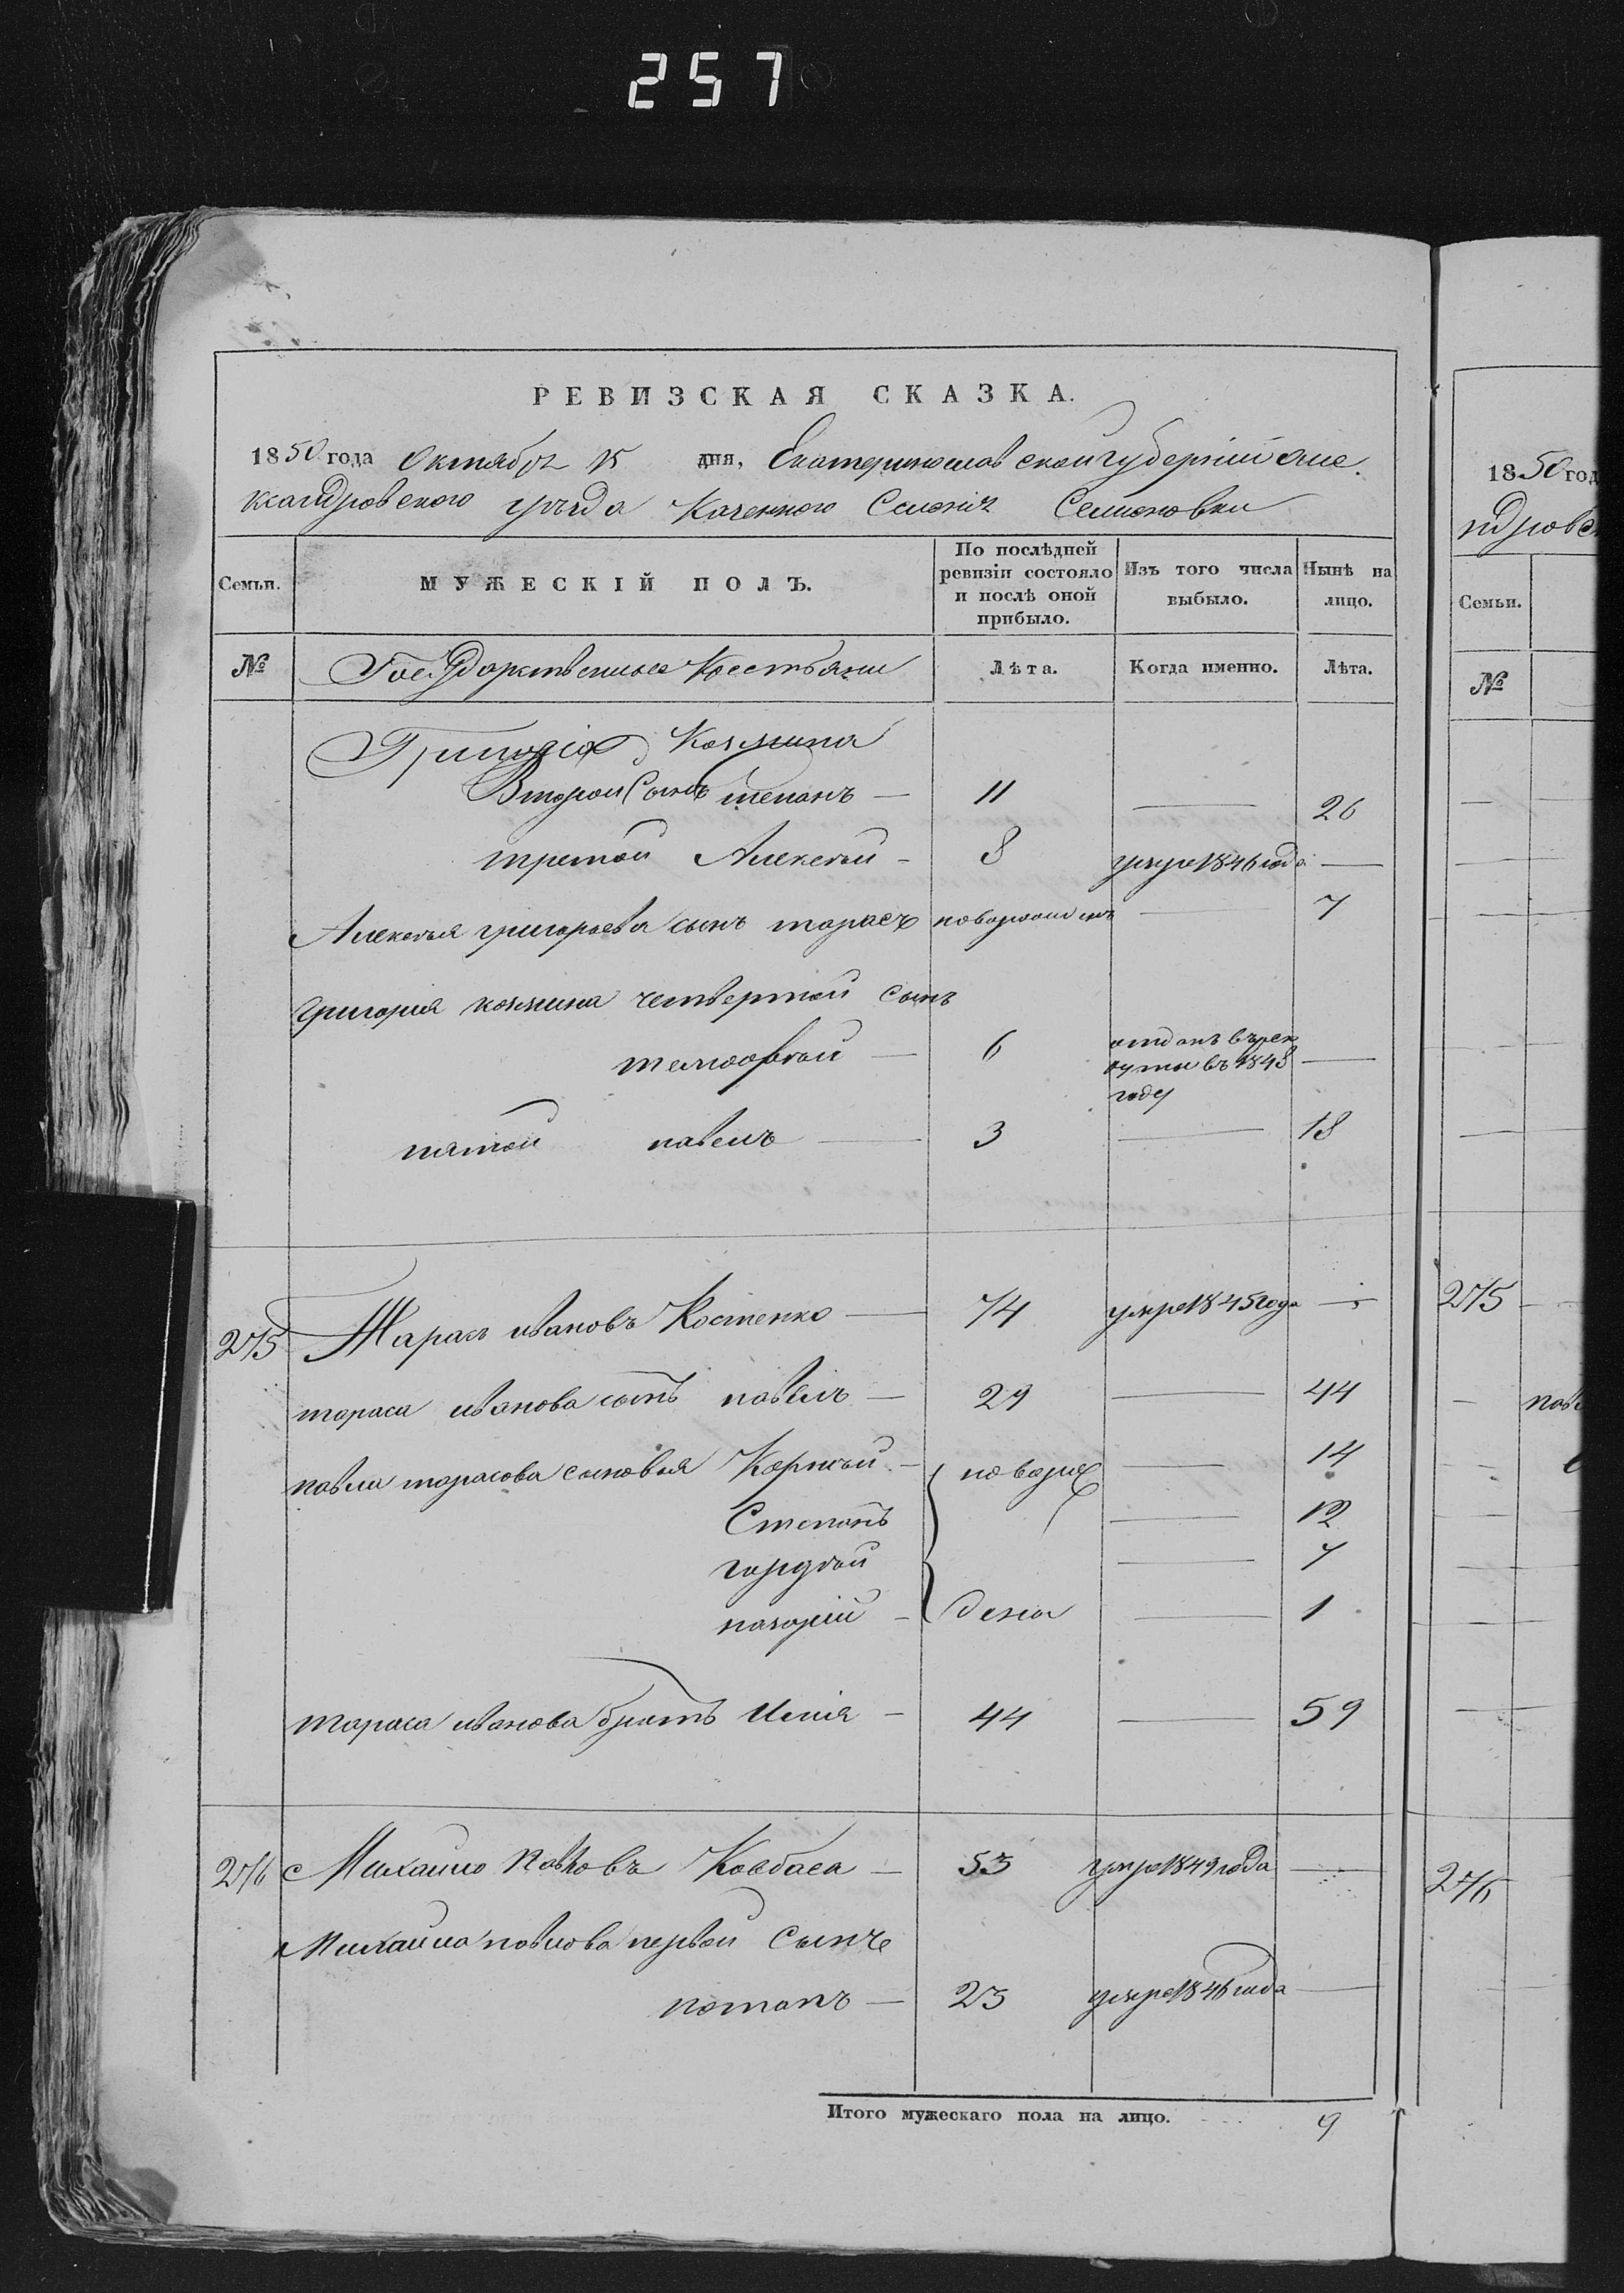 257
РЕВИЗСКАЯ СКАЗКА.
1850 года Октября 15 дня, Екатеринославскойгуберніи Але
ксандровского уезда Казенного Селенія Семеновки
Семьи. МУЖЕСКІЙ ПОЛЪ. По послѣдней ревизіи состояло и послѣ оной прибыло. Изъ того числа выбыло. Нынѣ на лицо.
№ Государственные Крестьяни Лѣта. Когда именно. Лѣта.
Григорія Козмина
Второй Сынъ степанъ — 11 — 26
третой Алексей - 8 умре 1846 года —
Алексея григорьева сынъ тарасъ новорожденъ — 7
григория козмина четвертой сынъ
тимофей — 6 отданъ въ рек
руты въ 1848 —
году
пятой павелъ — 3 — 18
275 Тарас ивановъ Костенко — 74 умре 1845 года —
тараса иванова сынъ павелъ — 29 — 44
павла тарасова сыновья Корней - новорож — 14
Степанъ — 12
гордей — 7
назарій - дена — 1
тараса иванова братъ Илія - 44 — 59
276 Михайло Павловъ Ковбаса — 53 умре 1849 года —
Михайла павлова первой Сынъ
потапъ — 23 умре 1846 года —
Итого мужескаго пола на лицо. 9
1850 год
ндровс
Семьи.
№
275
павл
276